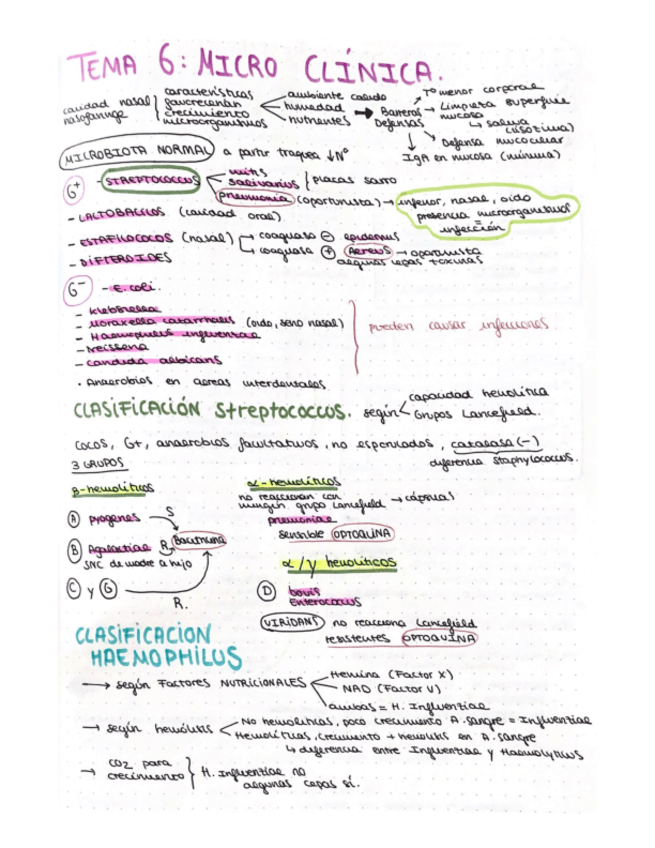 TEMA 6: MICRO CLÍNICA.
cavidad nasal
nasofaringe
características
favorecerán
crecimiento
microorganismos
ambiente calido
humedad
nutrientes
Barreras
Defensas
Tº menor corporal
Limpieza superficie
mucosa
saliva
(lisozima)
Defensa mucociliar
IgA en mucosa (mínima)
MICROBIOTA NORMAL a partir traquea ↓Nº
G+ - STREPTOCOCCUS
mitis
salivarius
placas sarro
pneumonia (oportunista) → inferior, nasal, oido
presencia microorganismos
=
infección
- LACTOBACILOS (cavidad oral)
- ESTAFILOCOCOS (nasal)
coagulasa ⊖ epidermis
coagulasa ⊕ Aereus → oportunista
algunas cepas toxinas
- DIFTEROIDES
G- - E. coli.
- Klebsiella
- Moraxella catarrhalis (oido, seno nasal)
- Haemophilus influenzae
- Neisseria
- candida albicans
pueden causar infecciones
· Anaerobios en aereas interdentales
CLASIFICACIÓN Streptococcus. según
capacidad hemolítica
Grupos Lancefield.
Cocos, G+, anaerobios facultativos, no esporulados, catalasa (-)
diferencia Staphylococcus.
3 GRUPOS
β-hemolíticos
A pyogenes S
B Agalactiae R Bacitracina
SNC de madre a hijo
C y G
R.
α-hemolíticos
no reaccionan con
ningún grupo Lancefield → cápsulas
pneumoniae
sensible OPTOQUINA
α/γ hemolíticos
D bovis
Enterococcus
VIRIDANS no reacciona Lancefield
resistentes OPTOQUINA
CLASIFICACION
HAEMOPHILUS
→ según FACTORES NUTRICIONALES
Hemina (Factor X)
NAD (Factor V)
ambas = H. Influenziae
→ según hemólisis
No hemolíticas, poco crecimiento A. sangre = Influenziae
Hemolíticas, crecimiento + hemolisis en A. sangre
↳ diferencia entre Influenziae y Haemolyticus
→ CO2 para
crecimiento
H. Influenziae no
algunas cepas sí.